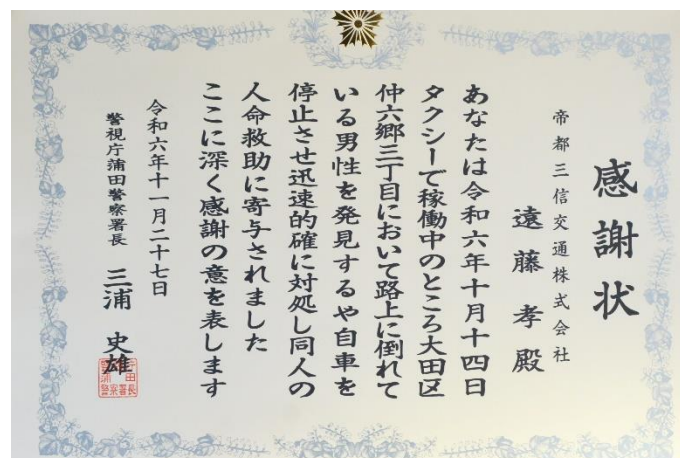 感謝状
帝都三信交通株式会社
遠藤孝殿
あなたは令和六年十月十四日
タクシーで稼働中のところ大田区
仲六郷三丁目において路上に倒れて
いる男性を発見するや自車を
停止させ迅速的確に対処し同人の
人命救助に寄与されました
ここに深く感謝の意を表します
令和六年十一月二十七日
警視庁蒲田警察署長 三浦史雄